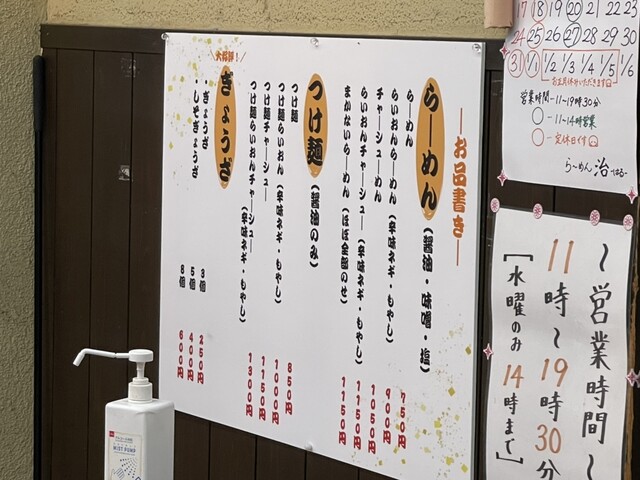 ―お品書き―
らーめん（醤油・味噌・塩）
らーめん 750円
らいおんらーめん（辛味ネギ・もやし） 900円
チャーシューめん 1050円
らいおんチャーシュー（辛味ネギ・もやし） 1150円
まかないらーめん（ほぼ全部のせ） 1150円
つけ麺（醤油のみ）
つけ麺 850円
つけ麺らいおん（辛味ネギ・もやし） 1000円
つけ麺チャーシュー 1150円
つけ麺らいおんチャーシュー（辛味ネギ・もやし） 1300円
ぎょうざ
・ぎょうざ 3個 250円
5個 400円
・しそぎょうざ 8個 600円
17 18 19 20 21 22 23
24 25 26 27 28 29 30
31 1/1 1/2 1/3 1/4 1/5 1/6
お正月休みいただきます
営業時間－11～19時30分
○－11～14時営業
○－定休日です
らーめん 治
～営業時間～
11時～19時30分
[水曜のみ14時まで]
MIST PUMP